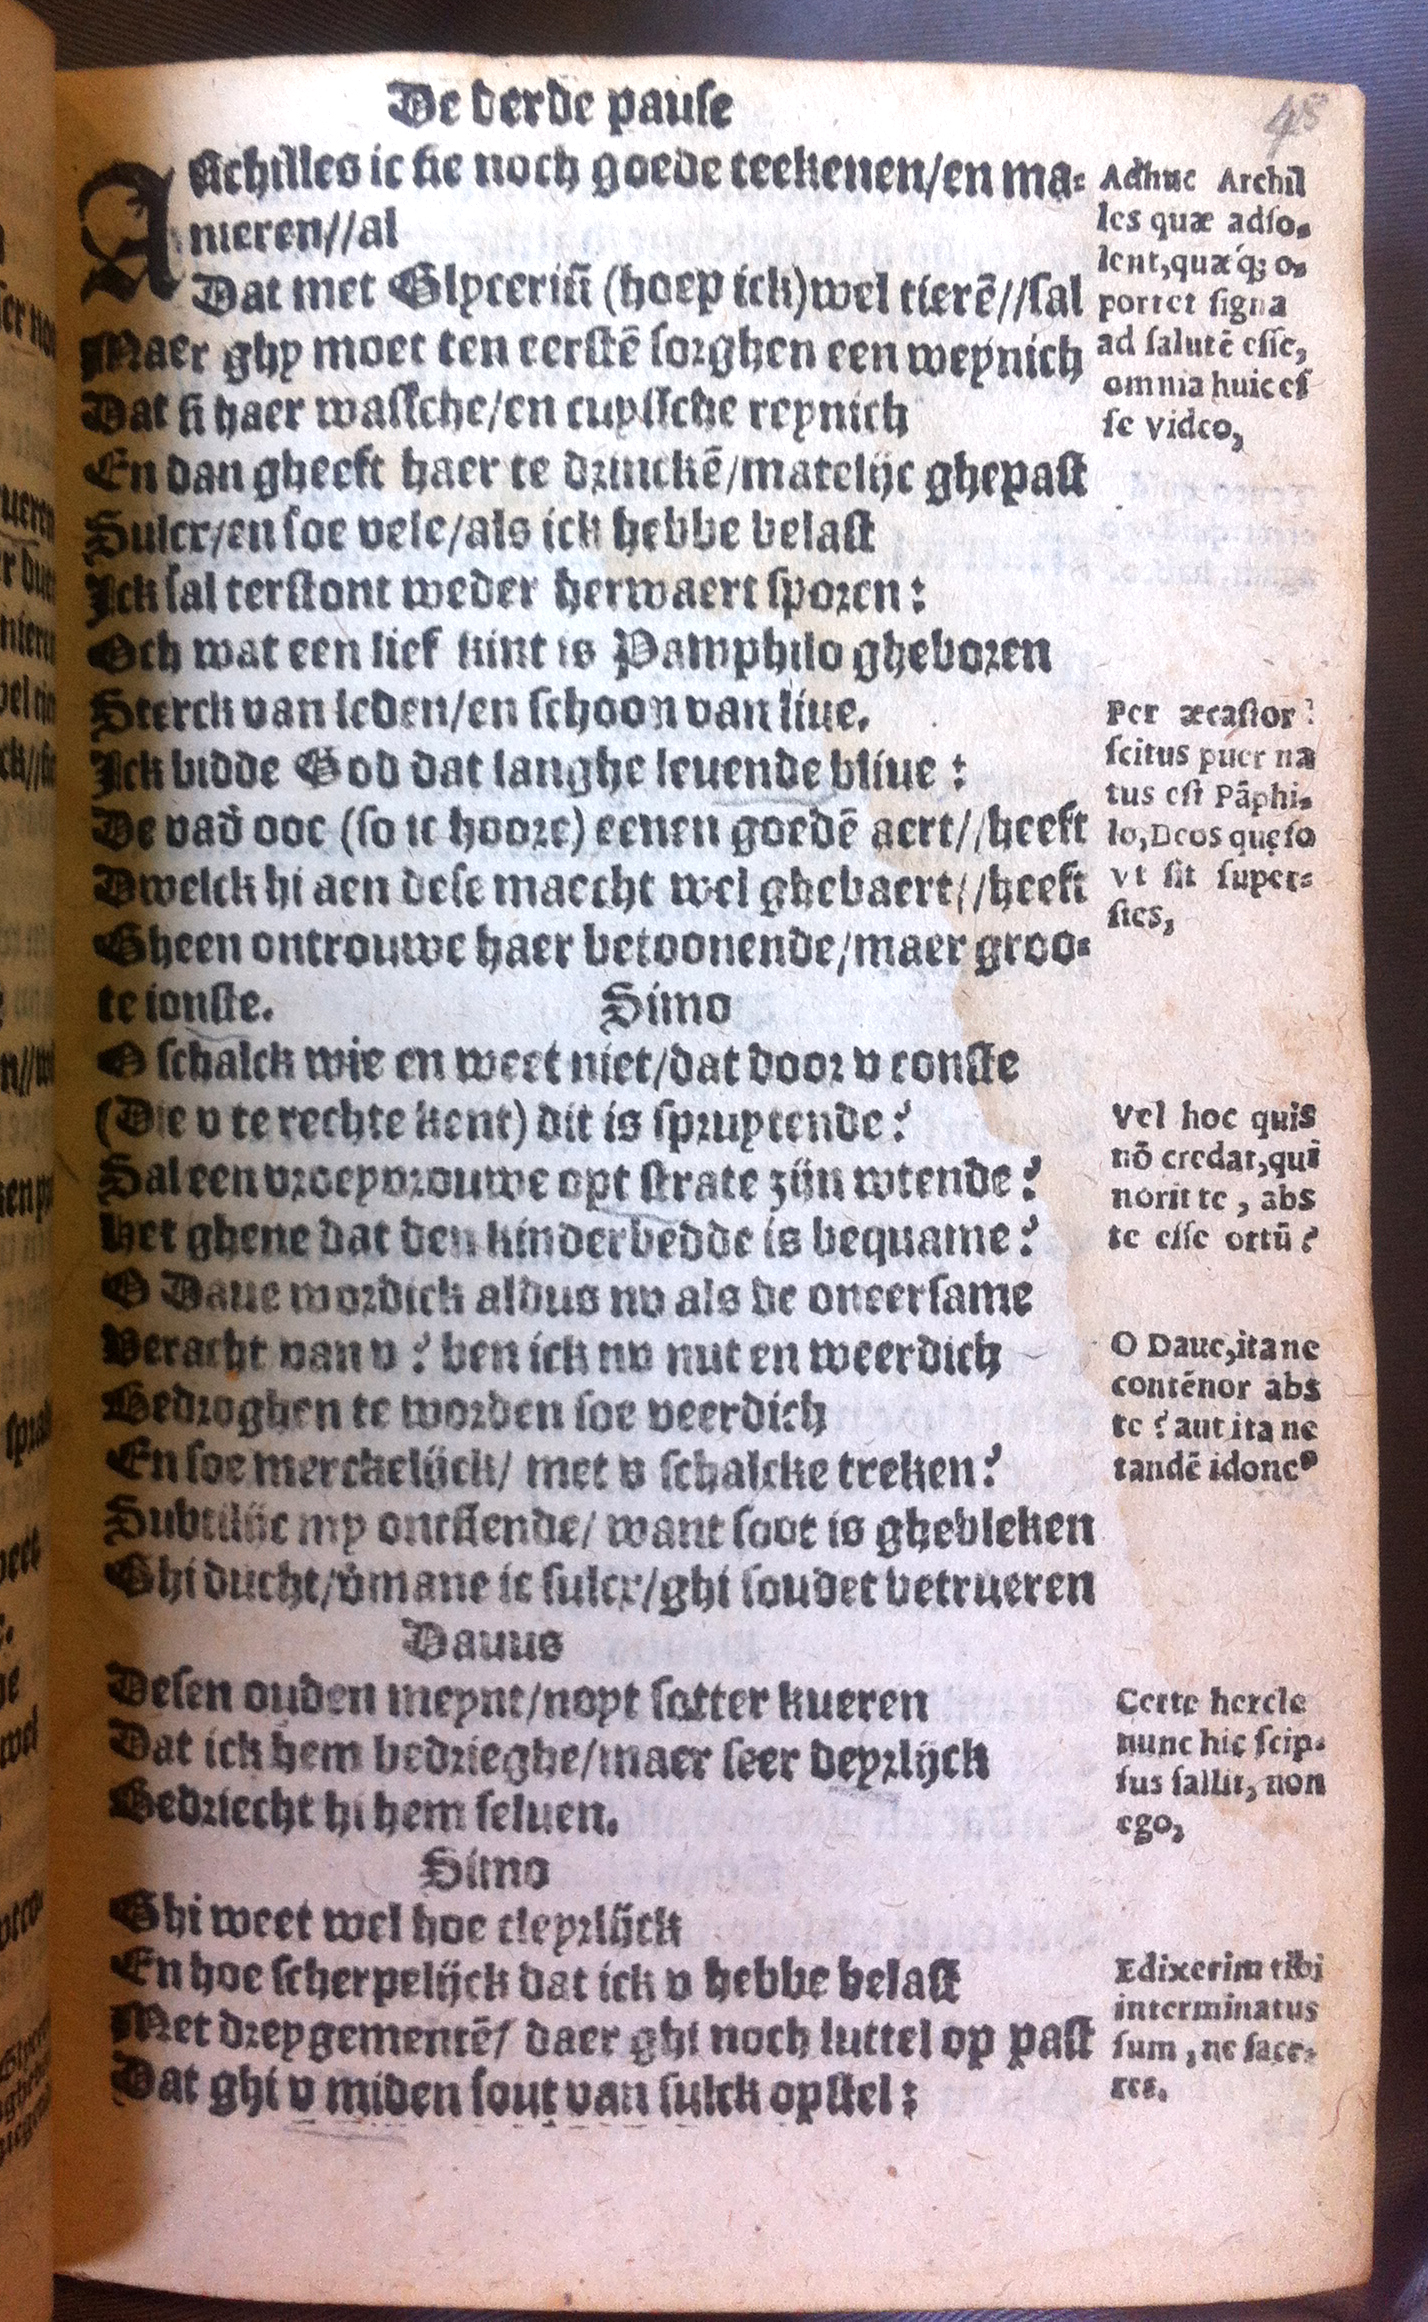 De derde pause
48
AAchilles ic sie noch goede teekenen/en ma⸗
nieren//al
Dat met Glyceriū (hoep ick) wel tierē//sal
Maer ghy moet ten eerstē sorghen een weynich
Dat si haer wassche/en cuyssche reynich
En dan gheeft haer te drinckē/matelijc ghepast
Sulcx/en soe vele/als ick hebbe belast
Ick sal terstont weder herwaert sporen:
Och wat een lief kint is Pamphilo gheboren
Sterck van leden/en schoon van liue.
Ick bidde God dat langhe leuende bliue:
De vad' ooc (so ic hoore) eenen goedē aert//heeft
Dwelck hi aen dese maecht wel ghebaert//heeft
Gheen ontrouwe haer betoonende/maer groo⸗
te ionste.
Simo
O schalck wie en weet niet/dat door v conste
(Die v te rechte kent) dit is spruytende?
Sal een vroeyvrouwe opt strate zijn wtende?
Het ghene dat den kinderbedde is bequame?
O Daue wordick aldus nv als de oneersame
Veracht van v? ben ick nv nut en weerdich
Gedroghen te worden soe veerdich
En soe merckelijck/ met v schalcke treken?
Subtilijc my ontsiende/ want soot is ghebleken
Ghi ducht/v'mane ic sulcx/ghi soudet betrueren
Dauus
Desen ouden meynt/noyt sotter kueren
Dat ick hem bedrieghe/maer seer deyrlijck
Bedriecht hi hem seluen.
Simo
Ghi weet wel hoe cleyrlijck
En hoe scherpelijck dat ick v hebbe belast
Met dreygementē/ daer ghi noch luttel op past
Dat ghi v miden sout van sulck opstel:
Adhuc Archil
les quæ adso⸗
lent,quæq́; o⸗
portet signa
ad salutē esse,
omnia huic es
se video,
Per æcastor
scitus puer na
tus est Pāphi⸗
lo,Deos quęso
vt sit super⸗
stes,
Vel hoc quis
nō credat,qui
norit te , abs
te esse ortū?
O Daue,itane
contēnor abs
te? aut ita ne
tandē idoneꝰ
Certe hercle
nunc hic seip⸗
sus fallit, non
ego,
Edixerim tibi
interminatus
sum , ne face⸗
res.